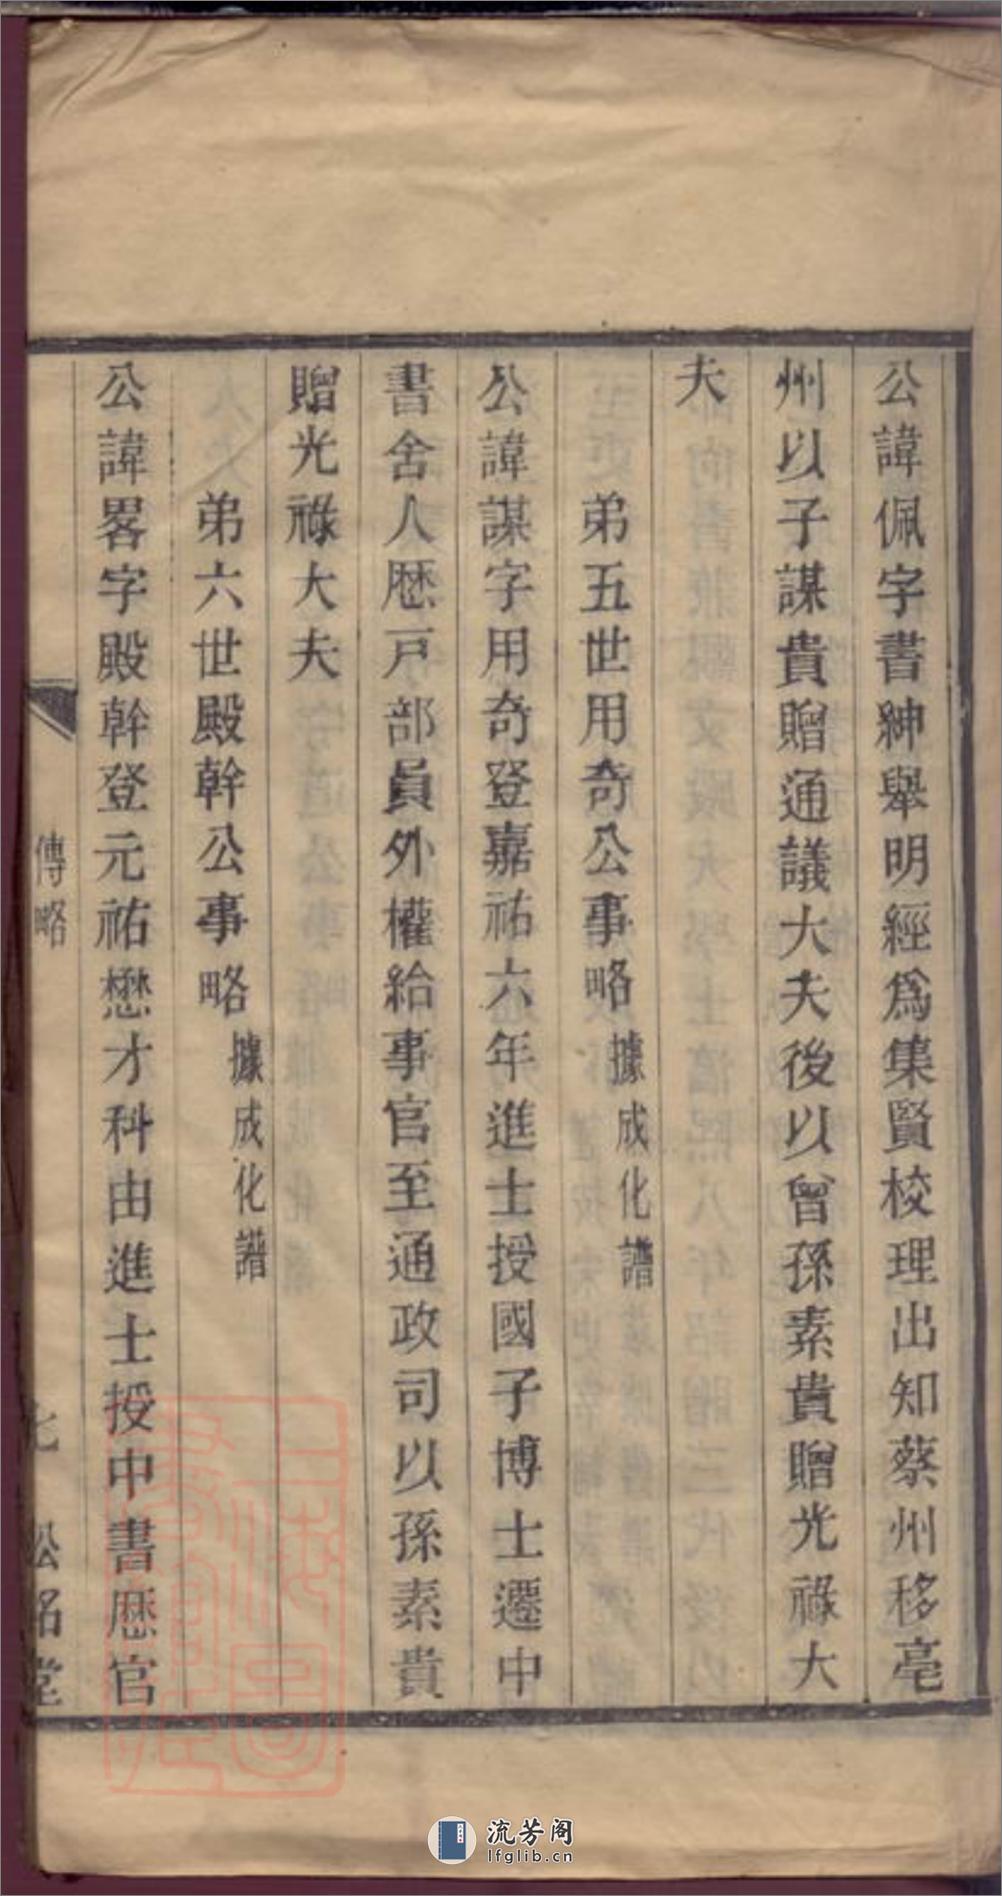 公諱佩字書紳舉明經爲集賢校理出知蔡州移亳
州以子謀貴贈通議大夫後以曾孫素貴贈光祿大
夫
弟五世用奇公事略據成化譜
公諱謀字用奇登嘉祐六年進士授國子博士遷中
書舍人歷戸部員外權給事官至通政司以孫素貴
贈光祿大夫
弟六世殿幹公事略據成化譜
公諱畧字殿幹登元祐懋才科由進士授中書歷官
傳略
七
松銘堂
流芳阁
lfglib.cn